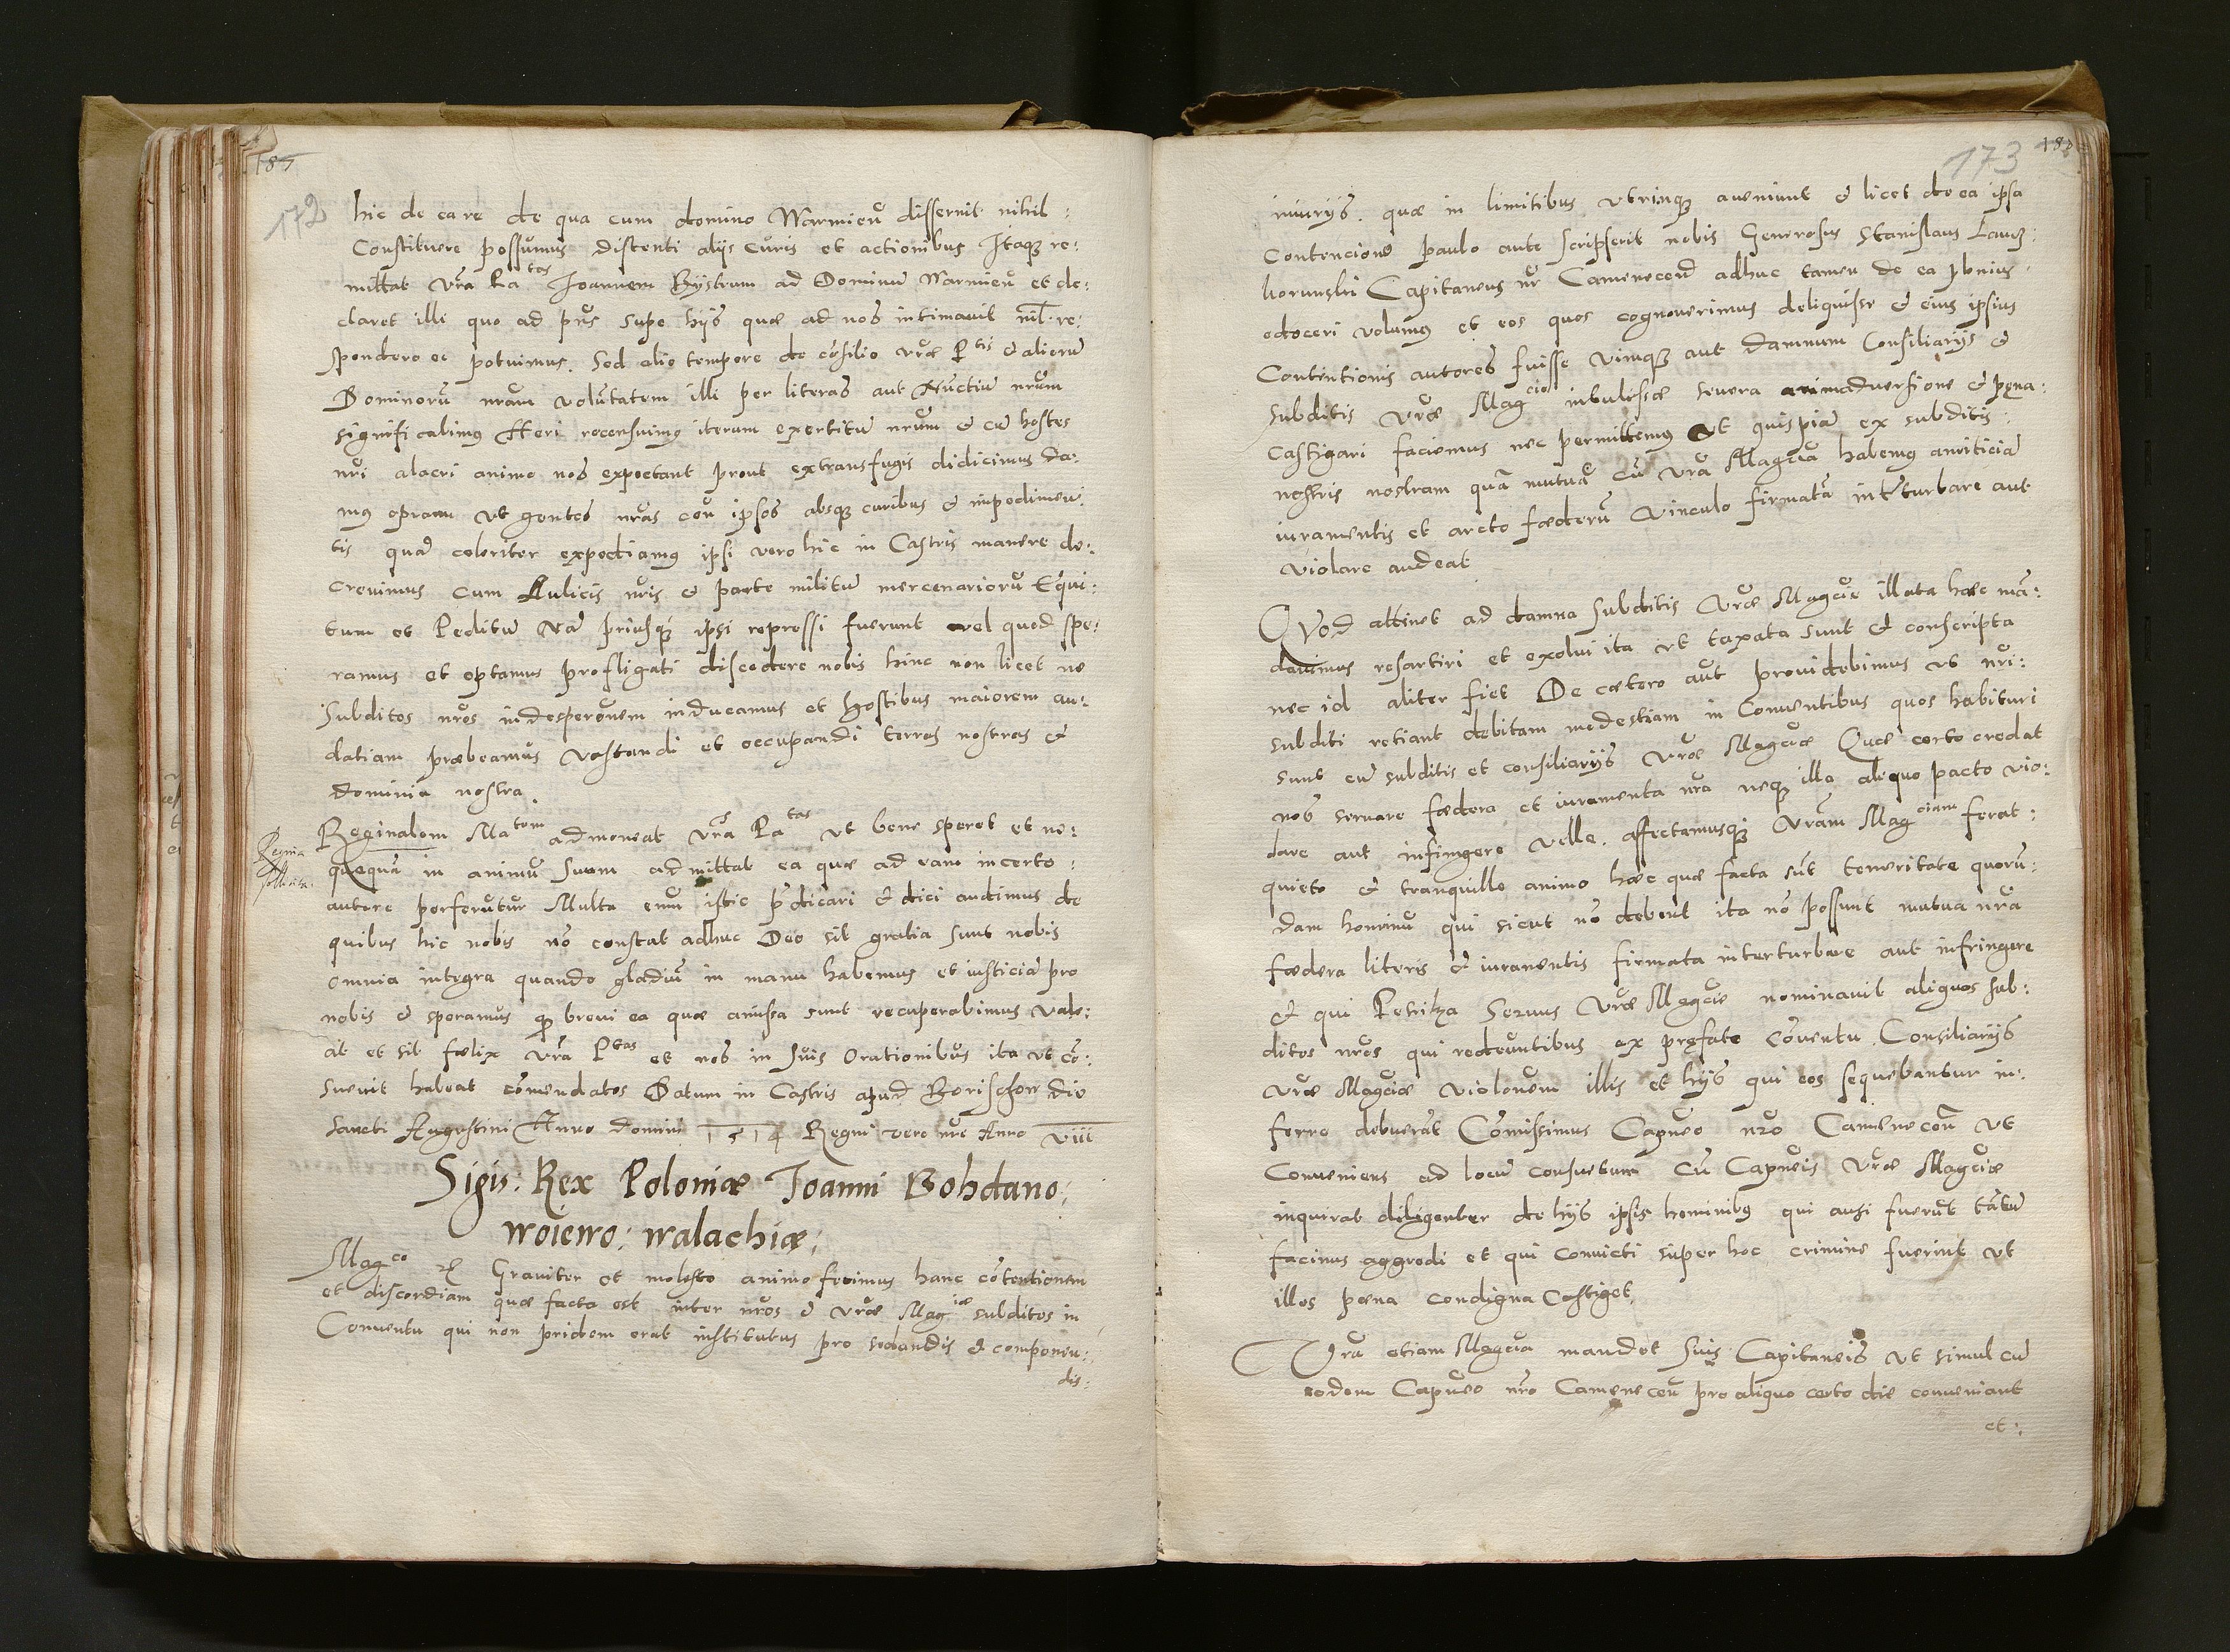 187
172
hic de ea re de qua cum domino Warmieñ disseruit nihil:
Constituere possumus distenti alijs curis et actionibus Itaqȝ re:
mittat vr̃a Pa tas Joannem Bystram ad Dominũ Warmieñ et de:
claret illi quo ad pñs supe hijs quæ ad nos intimauit nil re:
spondere ei potuimus. Sed alio tempore de cõsilio vr̃æ P tis & aliorũ
Dominorũ nr̃am volũtatem illi per literas aut Nũctiũ nr̃um
significabimus Heri recensuimus iterum exercitũ nr̃um & cũ hostes
nr̃i alacri animo nos expectant prout ex transfugis didicimus da:
mus operam vt gentes nr̃as coñ ipsos absqȝ curibus & impedimen:
tis quã celeriter expediamus ipsi vero hic in Castris manere de:
creuimus cum Aulicis nr̃is & parte militũ mercenariorũ Equi:
tum et Peditũ Nã priusqȝ ipsi repressi fuerunt vel quod spe:
ramus et optamus profligati discedere nobis hinc non licet ne
Subditos nr̃os in desperõnem inducamus et hostibus maiorem au:
datiam præbeamus vastandi et occupandi terras nostras &
dominia nostra.
Regina
sollicita.
Reginalem Ma tem admoneat vr̃a Pa tas vt bene speret et ne:
quequã in animũ suum admittat ea quæ ad eam incerto:
autore perferũtur Multa enim istic p̃dicari & dici audimus de
quibus hic nobis nõ constat adhuc Deo sit gratia sunt nobis
omnia integra quando gladiũ in manu habemus et iusticiã pro
nobis & speramus q̃ breui ea quæ amissa sunt recuperabimus Vale:
at et sit fælix vr̃a P tas et nos in suis Orationibus ita vt cõ:
sueuit habeat cõmendatos Datum in Castris apud Borischow die
sancti Augustini Anno domini 1514 Regni vero nr̃i Anno viii
Sigis: Rex Poloniæ Joanni Bohdano:
woiewo: walachiæ:
Mag co Graviter et molesto animo ferimus hanc cõtentionem
et discordiam quæ facta est inter nr̃os & vr̃æ Mag iæ subditos in
Conuentu qui non pridem erat institutus pro sedandis & componen:
dis:
173
iniurijs. quæ in limitibus vtrinqȝ aueniunt & licet de ea ipsa
Contencione paulo ante scripserit nobis Generosus Stanislaus Lancȝ:
korunski Capitaneus nr̃ Cameneceñ adhuc tamen de ea plenius
edoceri volumus et eos quos cognouerimus deliquisse & eius ipsius
Contentionis autores fuisse vimqȝ aut damnum Consiliarijs &
subditis vr̃æ Mag ciæ intulisse seuera animaduersione & pęna:
castigari faciemus nec permittemus vt quispiã ex subditis:
nostris nostram quã mutuã cũ vr̃a Magc̃ia habemus amiticiã
iuramentis et arcto fœderũ vinculo firmatã inťturbare aut
violare audeat
Quod attinet ad damna subditis Vr̃æ Magc̃iæ illata hæc mã:
dauimus resartiri et exolui ita vt taxata sunt & conscripta
nec id aliter fiet De cætero aũt prouidebimus vt nr̃i:
subditi retiant debitam modestiam in Conuentibus quos habituri
sunt cũ subditis et consiliarijs Vr̃æ Magc̃iæ Quæ certo credat
nos seruare fœdera et iuramenta nr̃a neqȝ illa aliquo pacto vio:
lare aut infringere velle. affectamusqȝ Vr̃am Mag ciam ferat:
quieto & tranquillo animo hæc quæ facta sũt temeritate quorũ:
dam hominũ qui sicut nõ debent ita nõ possunt mutua nr̃a
fœdera literis & iuramentis firmata interturbare aut infringere
& qui Petrika Seruus Vr̃æ Magc̃iæ nominauit aliquos sub:
ditos nr̃os qui redeũntibus ex pręfato cõuentu Consiliarijs
vr̃æ Magc̃iæ violenem illis et hijs qui eos sequebantur in:
ferre debuerãt Cõmissimus Capneo nr̃o Cameneceñ vt
Conueniens ad locũ consuetum cũ Capneis Vr̃æ Magc̃iæ
inquirat diligenter de hijs ipsis hominibus qui ausi fuerũt tãtũ
facinus aggredi et qui conuicti super hoc crimine fuerint vt
illos pœna condigna Castiget.
Vr̃a etiam Magc̃ia mandet Suis Capitaneis vt simul cũ
eodem Capneo nr̃o Cameneceñ pro aliquo certo die conueniant
et: